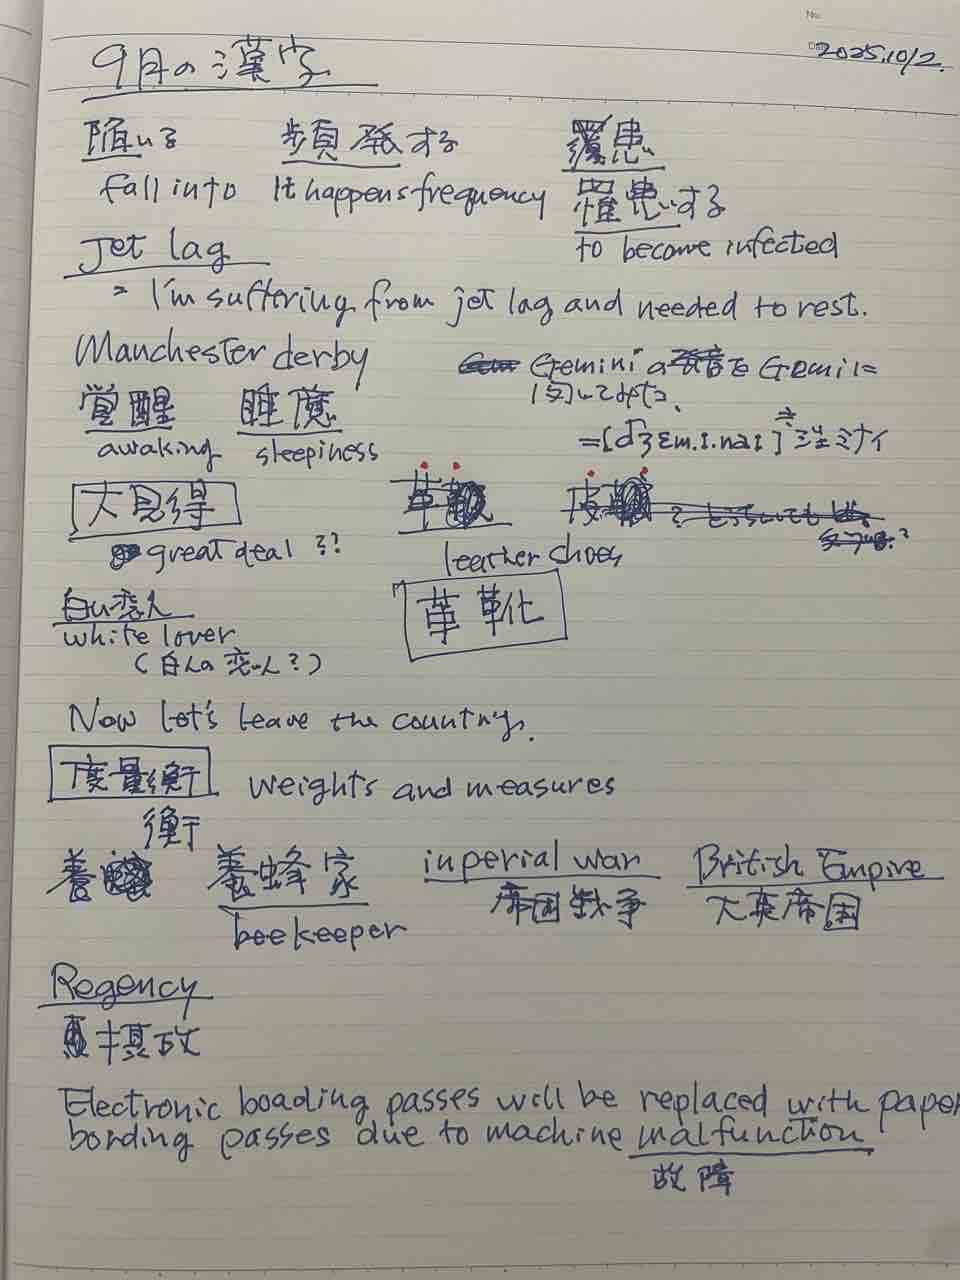 No.
Date 2025.10/2.
9月の漢字
陥いる 頻発する 覆患
fall into It happens frequency 罹患する
to become infected
Jet lag
= I'm suffering from jet lag and needed to rest.
Manchester derby
Geminiの発音をGemiに
伺いてみた、
覚醒 睡魔
awaking sleepiness
=[dʒɛm.ɪ.naɪ] ジェミナイ
大見得 革 皮
great deal ?? leather shoes
白い恋人 革靴
white lover
(白人の恋人?)
Now let's leave the country.
度量衡 weights and measures
衡
養 養蜂家 inperial war British Empire
beekeeper 帝国戦争 大英帝国
Regency
摂政
Electronic boading passes will be replaced with paper
bording passes due to machine malfunction
故障